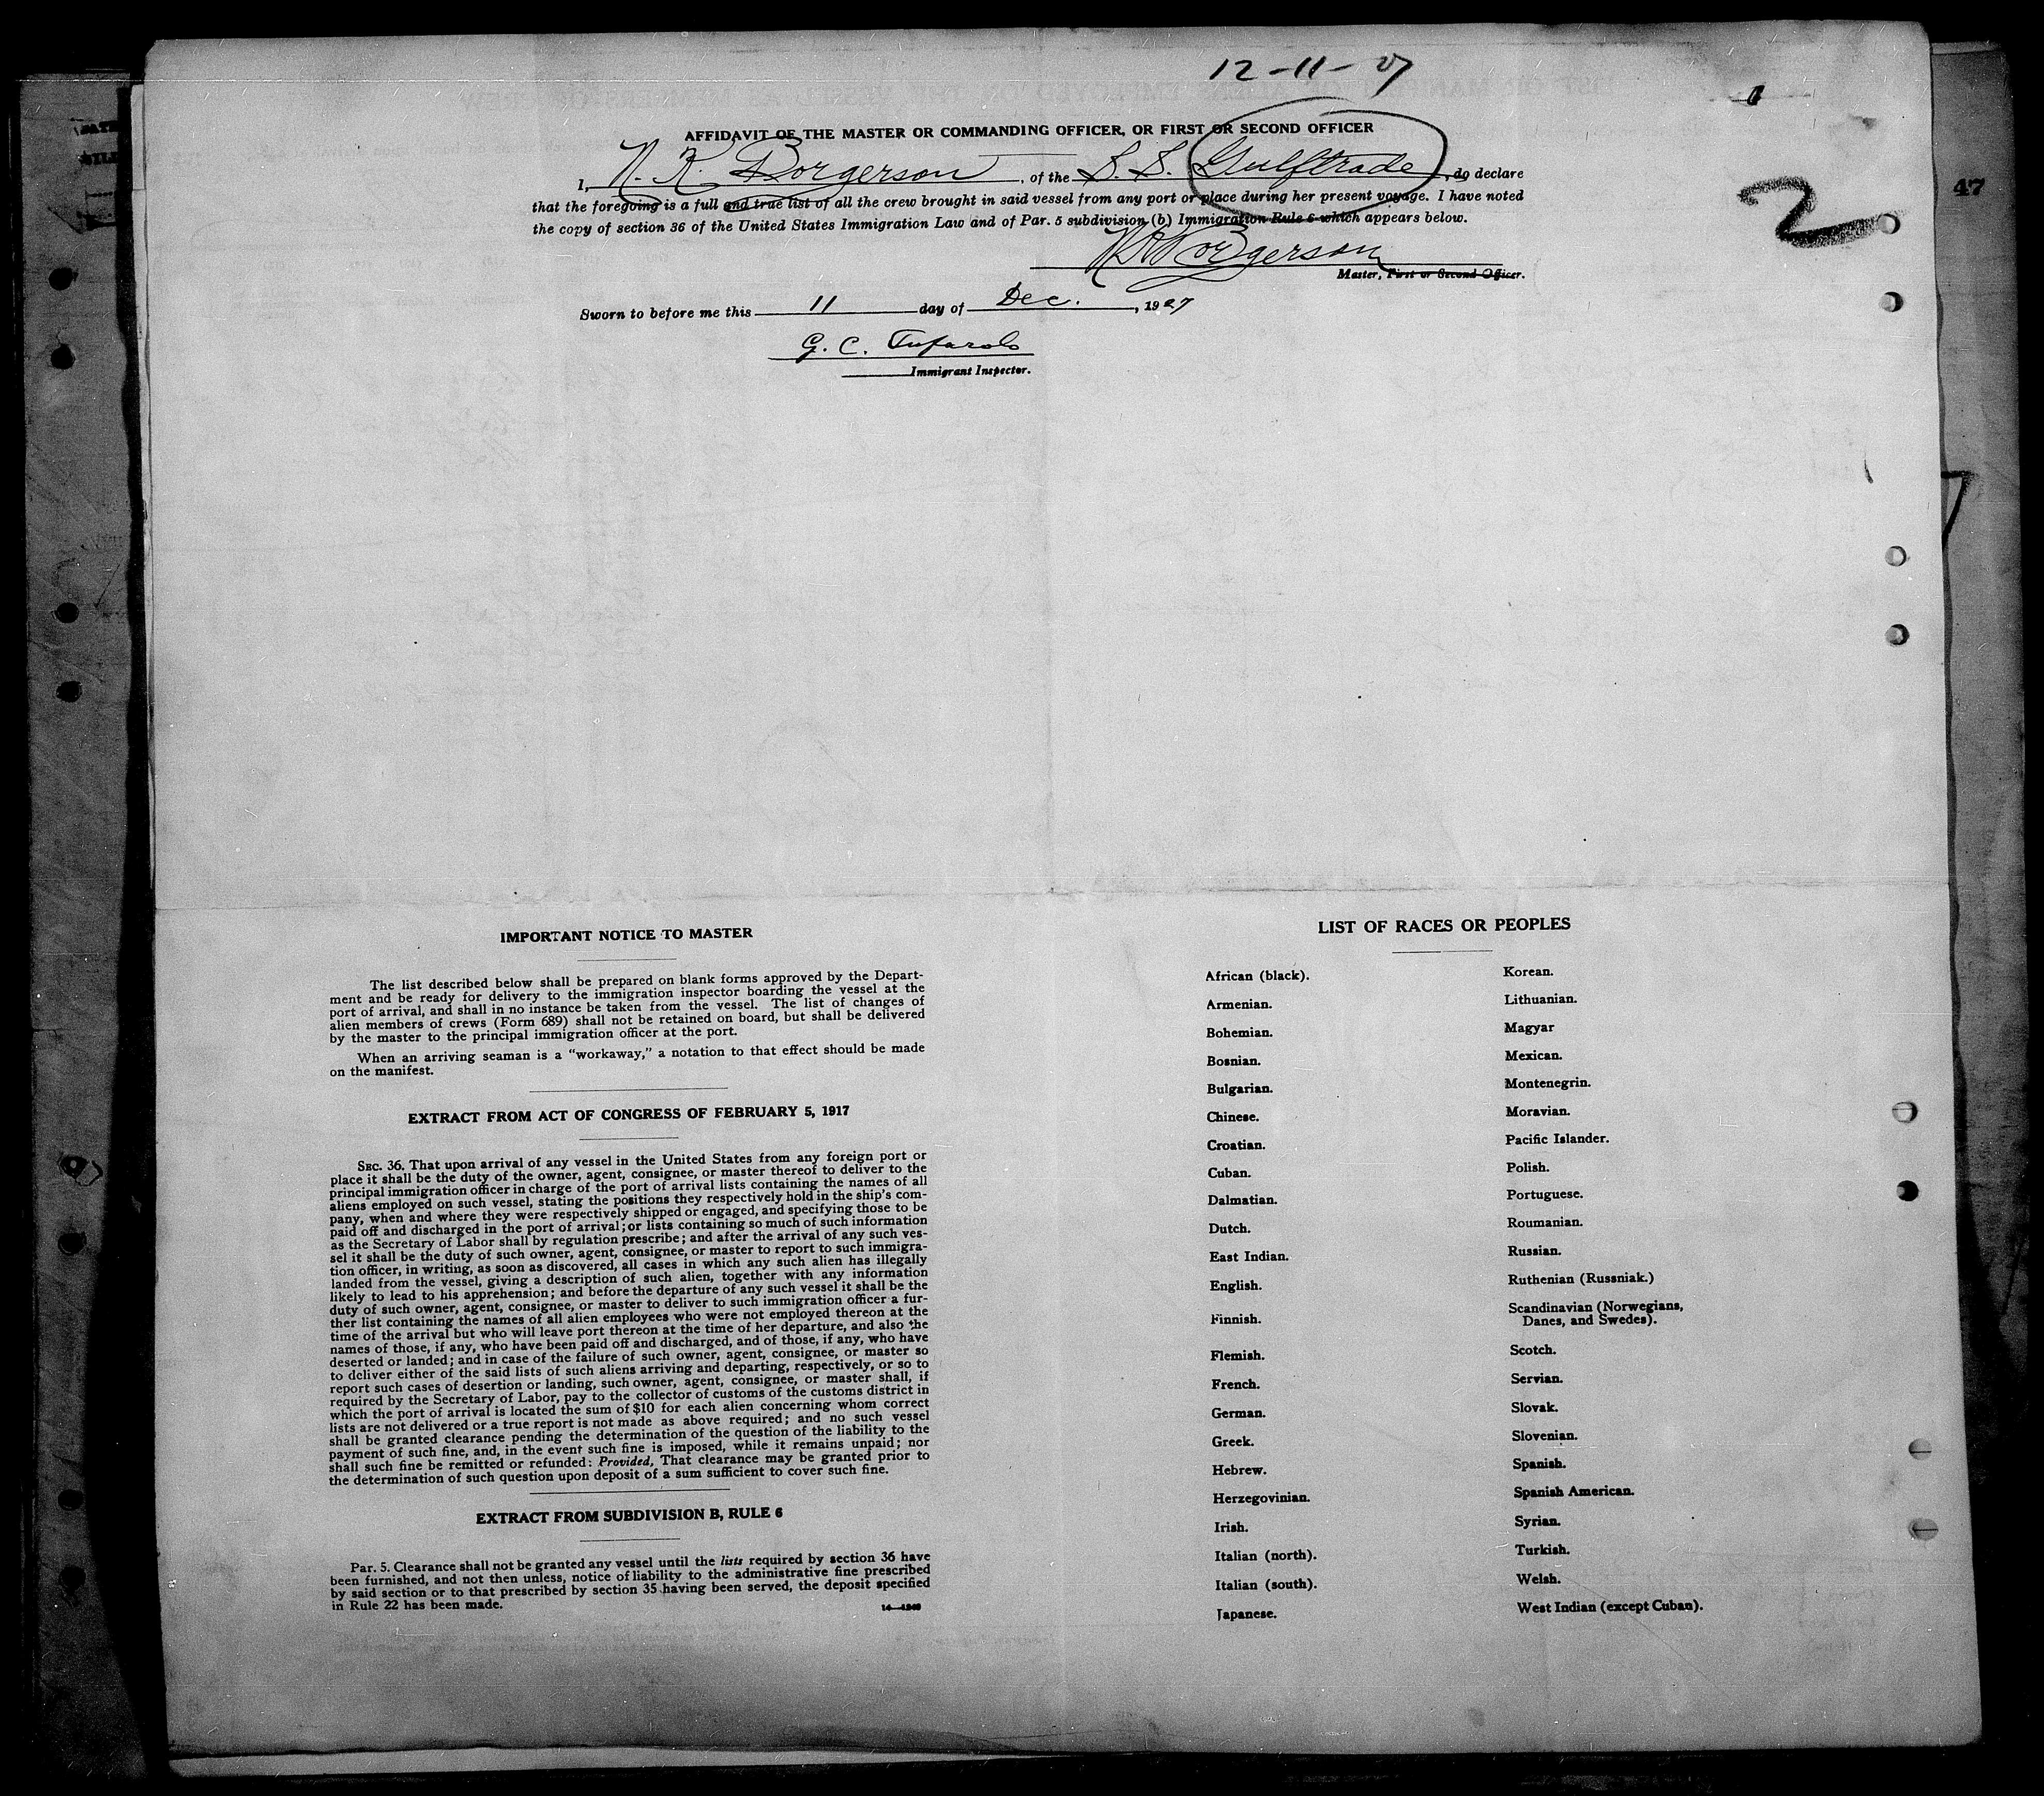 12-11-27
AFFIDAVIT OF THE MASTER OR COMMANDING OFFICER, OR FIRST OR SECOND OFFICER
I, N. K. Borgerson, of the S. S. Gulftrade, do declare
that the foregoing is a full and true list of all the crew brought in said vessel from any port or place during her present voyage. I have noted
the copy of section 36 of the United States Immigration Law and of Par. 5 subdivision (b) Immigration Rule 6 which appears below.
2
47
N K Borgerson
Master, First or Second Officer.
Sworn to before me this 11 day of Dec., 1927
G. C.
Immigrant Inspector.
IMPORTANT NOTICE TO MASTER
The list described below shall be prepared on blank forms approved by the Depart-
ment and be ready for delivery to the immigration inspector boarding the vessel at the
port of arrival, and shall in no instance be taken from the vessel. The list of changes of
alien members of crews (Form 689) shall not be retained on board, but shall be delivered
by the master to the principal immigration officer at the port.
When an arriving seaman is a "workaway," a notation to that effect should be made
on the manifest.
EXTRACT FROM ACT OF CONGRESS OF FEBRUARY 5, 1917
SEC. 36. That upon arrival of any vessel in the United States from any foreign port or
place it shall be the duty of the owner, agent, consignee, or master thereof to deliver to the
principal immigration officer in charge of the port of arrival lists containing the names of all
aliens employed on such vessel, stating the positions they respectively hold in the ship's com-
pany, when and where they were respectively shipped or engaged, and specifying those to be
paid off and discharged in the port of arrival; or lists containing so much of such information
as the Secretary of Labor shall by regulation prescribe; and after the arrival of any such ves-
sel it shall be the duty of such owner, agent, consignee, or master to report to such immigra-
tion officer, in writing, as soon as discovered, all cases in which any such alien has illegally
landed from the vessel, giving a description of such alien, together with any information
likely to lead to his apprehension; and before the departure of any such vessel it shall be the
duty of such owner, agent, consignee, or master to deliver to such immigration officer a fur-
ther list containing the names of all alien employees who were not employed thereon at the
time of the arrival but who will leave port thereon at the time of her departure, and also the
names of those, if any, who have been paid off and discharged, and of those, if any, who have
deserted or landed; and in case of the failure of such owner, agent, consignee, or master so
to deliver either of the said lists of such aliens arriving and departing, respectively, or so to
report such cases of desertion or landing, such owner, agent, consignee, or master shall, if
required by the Secretary of Labor, pay to the collector of customs of the customs district in
which the port of arrival is located the sum of $10 for each alien concerning whom correct
lists are not delivered or a true report is not made as above required; and no such vessel
shall be granted clearance pending the determination of the question of the liability to the
payment of such fine, and, in the event such fine is imposed, while it remains unpaid; nor
shall such fine be remitted or refunded: Provided, That clearance may be granted prior to
the determination of such question upon deposit of a sum sufficient to cover such fine.
EXTRACT FROM SUBDIVISION B, RULE 6
Par. 5. Clearance shall not be granted any vessel until the lists required by section 36 have
been furnished, and not then unless, notice of liability to the administrative fine prescribed
by said section or to that prescribed by section 35 having been served, the deposit specified
in Rule 22 has been made.
LIST OF RACES OR PEOPLES
African (black).
Armenian.
Bohemian.
Bosnian.
Bulgarian.
Chinese.
Croatian.
Cuban.
Dalmatian.
Dutch.
East Indian.
English.
Finnish.
Flemish.
French.
German.
Greek.
Hebrew.
Herzegovinian.
Irish.
Italian (north).
Italian (south).
Japanese.
Korean.
Lithuanian.
Magyar
Mexican.
Montenegrin.
Moravian.
Pacific Islander.
Polish.
Portuguese.
Roumanian.
Russian.
Ruthenian (Russniak.)
Scandinavian (Norwegians,
Danes, and Swedes).
Scotch.
Servian.
Slovak.
Slovenian.
Spanish.
Spanish American.
Syrian.
Turkish.
Welsh.
West Indian (except Cuban).